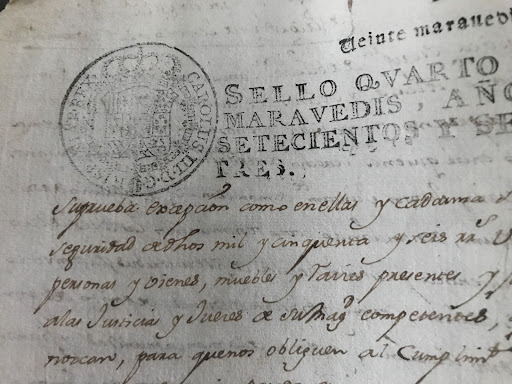 Veinte maraved
SELLO QVARTO
MARAVEDIS AÑO
SETECIENTOS Y SE
TRES.
CAROLUS III D G
su prueba excepcion como en ellas y cada una
seguridad dedhos mil y cinquenta y seis rrs
personas y vienes, muebles y raires presentes y
alas Justicias y Jueces de su Magd competentes,
nozcan, para quenos obliguen al Cumplimto